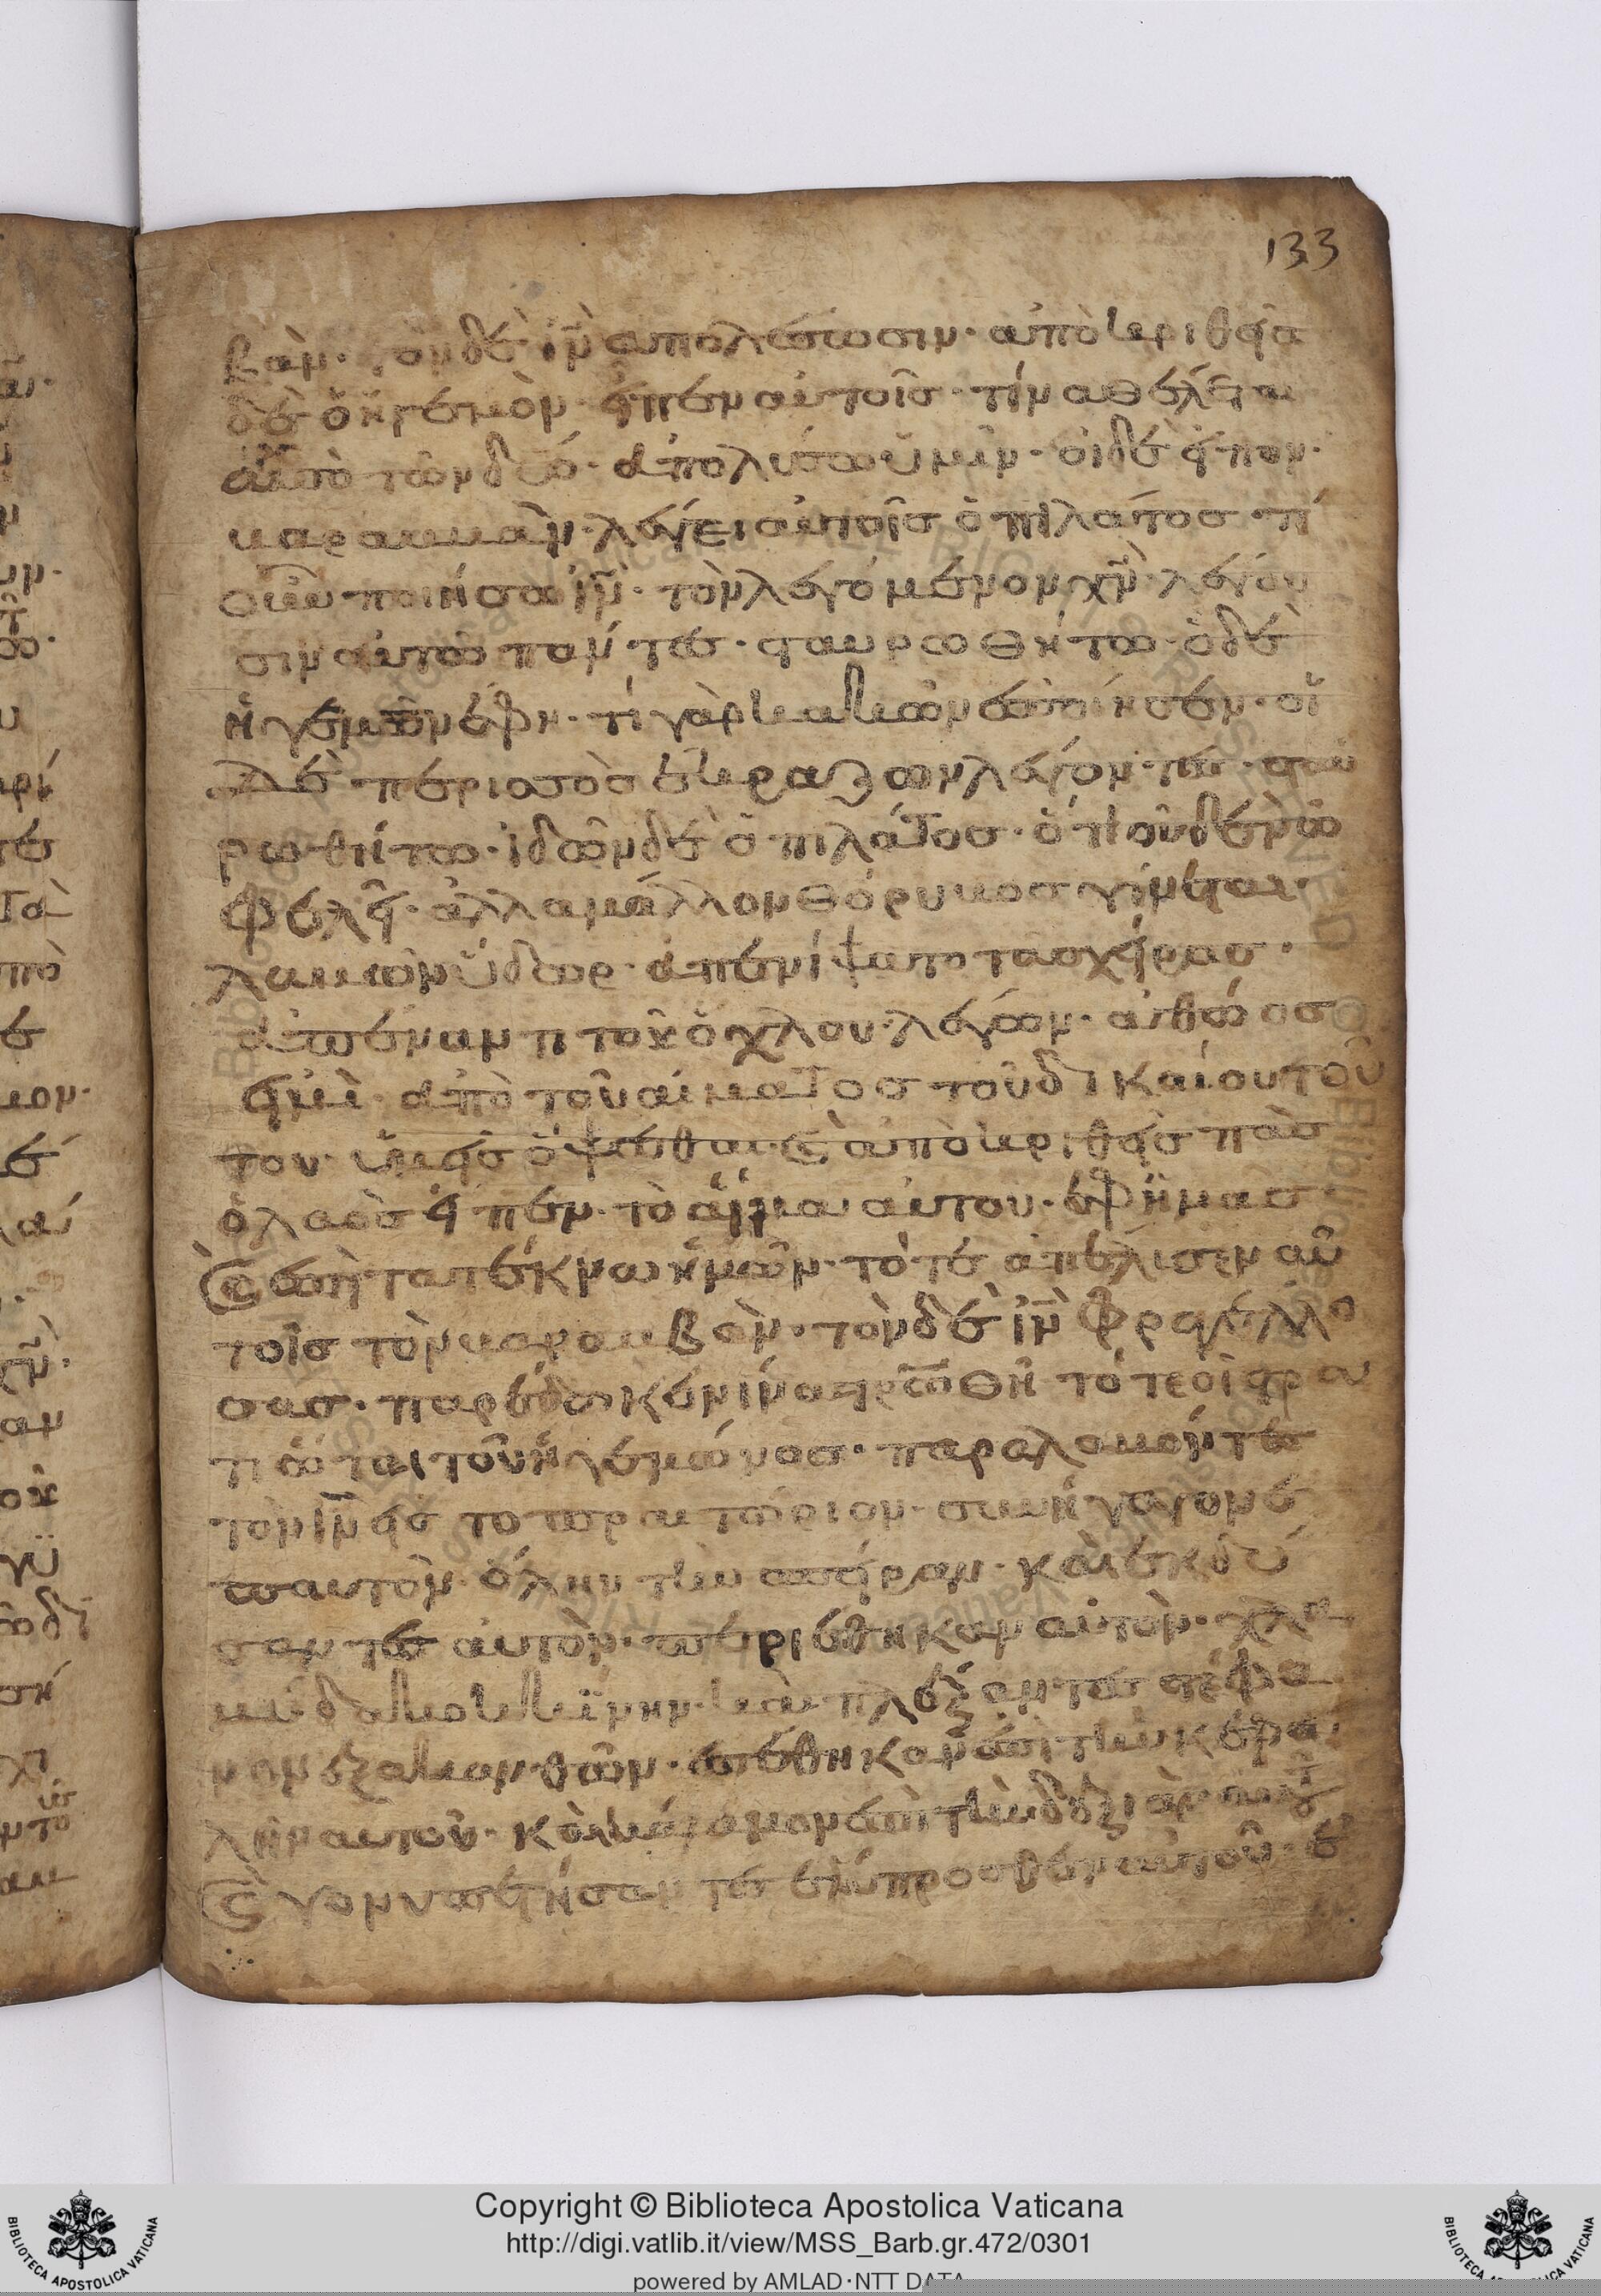 133
βὰμ· τὸν δὲ ἰ̅ν̅ ἀπολέσωσιν· ἀποκριθεὶς
δὲ ὁ ἡγεμὸν εἶπεν αὐτοῖς· τίνα θέλεται
ἀπὸ τῶν δύο· ἀπολύσω ὑμῖν· οἱ δὲ εἶπον·
βαραββὰν· λέγει αὐτοῖς ὁ πιλάτος· τί
οὖν ποιήσω ἰ̅ν̅· τὸν λεγόμενον χ̅ν̅· λέγου
σιν αὐτῶ πάντες· σταυρωθήτω· ὁ δὲ
ἡγεμὼν ἔφη· τί γὰρ κακὼν ἐποίησεν· οἱ
δὲ περισσὸς ἔκραζων λέγον τες· σταυ
ρωθήτω· ἰδὼν δὲ ὁ πιλάτος· ὅτι οὐδὲν ὠ
φελεῖ· ἀλλα μάλλον θόρυβος γίνεται·
λαβὼν ὕδωρ· ἀπενίψατο τὰς χείρας·
ἀπέναντι τοῦ ὄχλου· λέγων· ἀθώος
εἰμὶ· ἀπὸ τοῦ αίματος τοῦ δικαίου του
του· ὑμεῖς ὄψεσθαι· ϗ ἀποκριθεὶς πὰς
ὁ λαὸς εἶπεν· τὸ αἷμα αὐτου· ἐφ ἡμας
ϗ ἐπὶ τα τέκνα ἡμῶν· τότε ἀπέλισεν αὐ
τοῖς τὸν βαραββὰν· τὸν δὲ ἰ̅ν̅ φραγελλο
σας· παρέδωκεν ἵνα σ̅ρ̅ωθῆ τότε οἱ στρα
τιῶται τοῦ ἡγεμώνος· παραλαβόντες
τὸν ἰ̅ν̅ εἰς το πραιτώριον· συνήγαγον ἐ
π αυτὸν· ὅλην τὴν σπείραν· καὶ ἐκδύ
σαντες αὐτὸν· περιέθηκαν αὐτὸν· χλα
μύδα κοκκίνην· καὶ πλέξαντες στέφα
νον ἐξ ακανθῶν· ἐπέθηκαν ἐπὶ τὴν κεφα
λὴν αυτοῦ· κὰλαμον ἐπὶ τὴν δεξιὰν αυτ
ϗ γονυπετήσαντες ἐμπροσθεν αὐτοῦ· ἐ
Copyright © Biblioteca Apostolica Vaticana
http://digi.vatlib.it/view/MSS_Barb.gr.472/0301
powered by AMLAD·NTT DATA
BIBLIOTECA APOSTOLICA VATICANA
BIBLIOTECA APOSTOLICA VATICANA